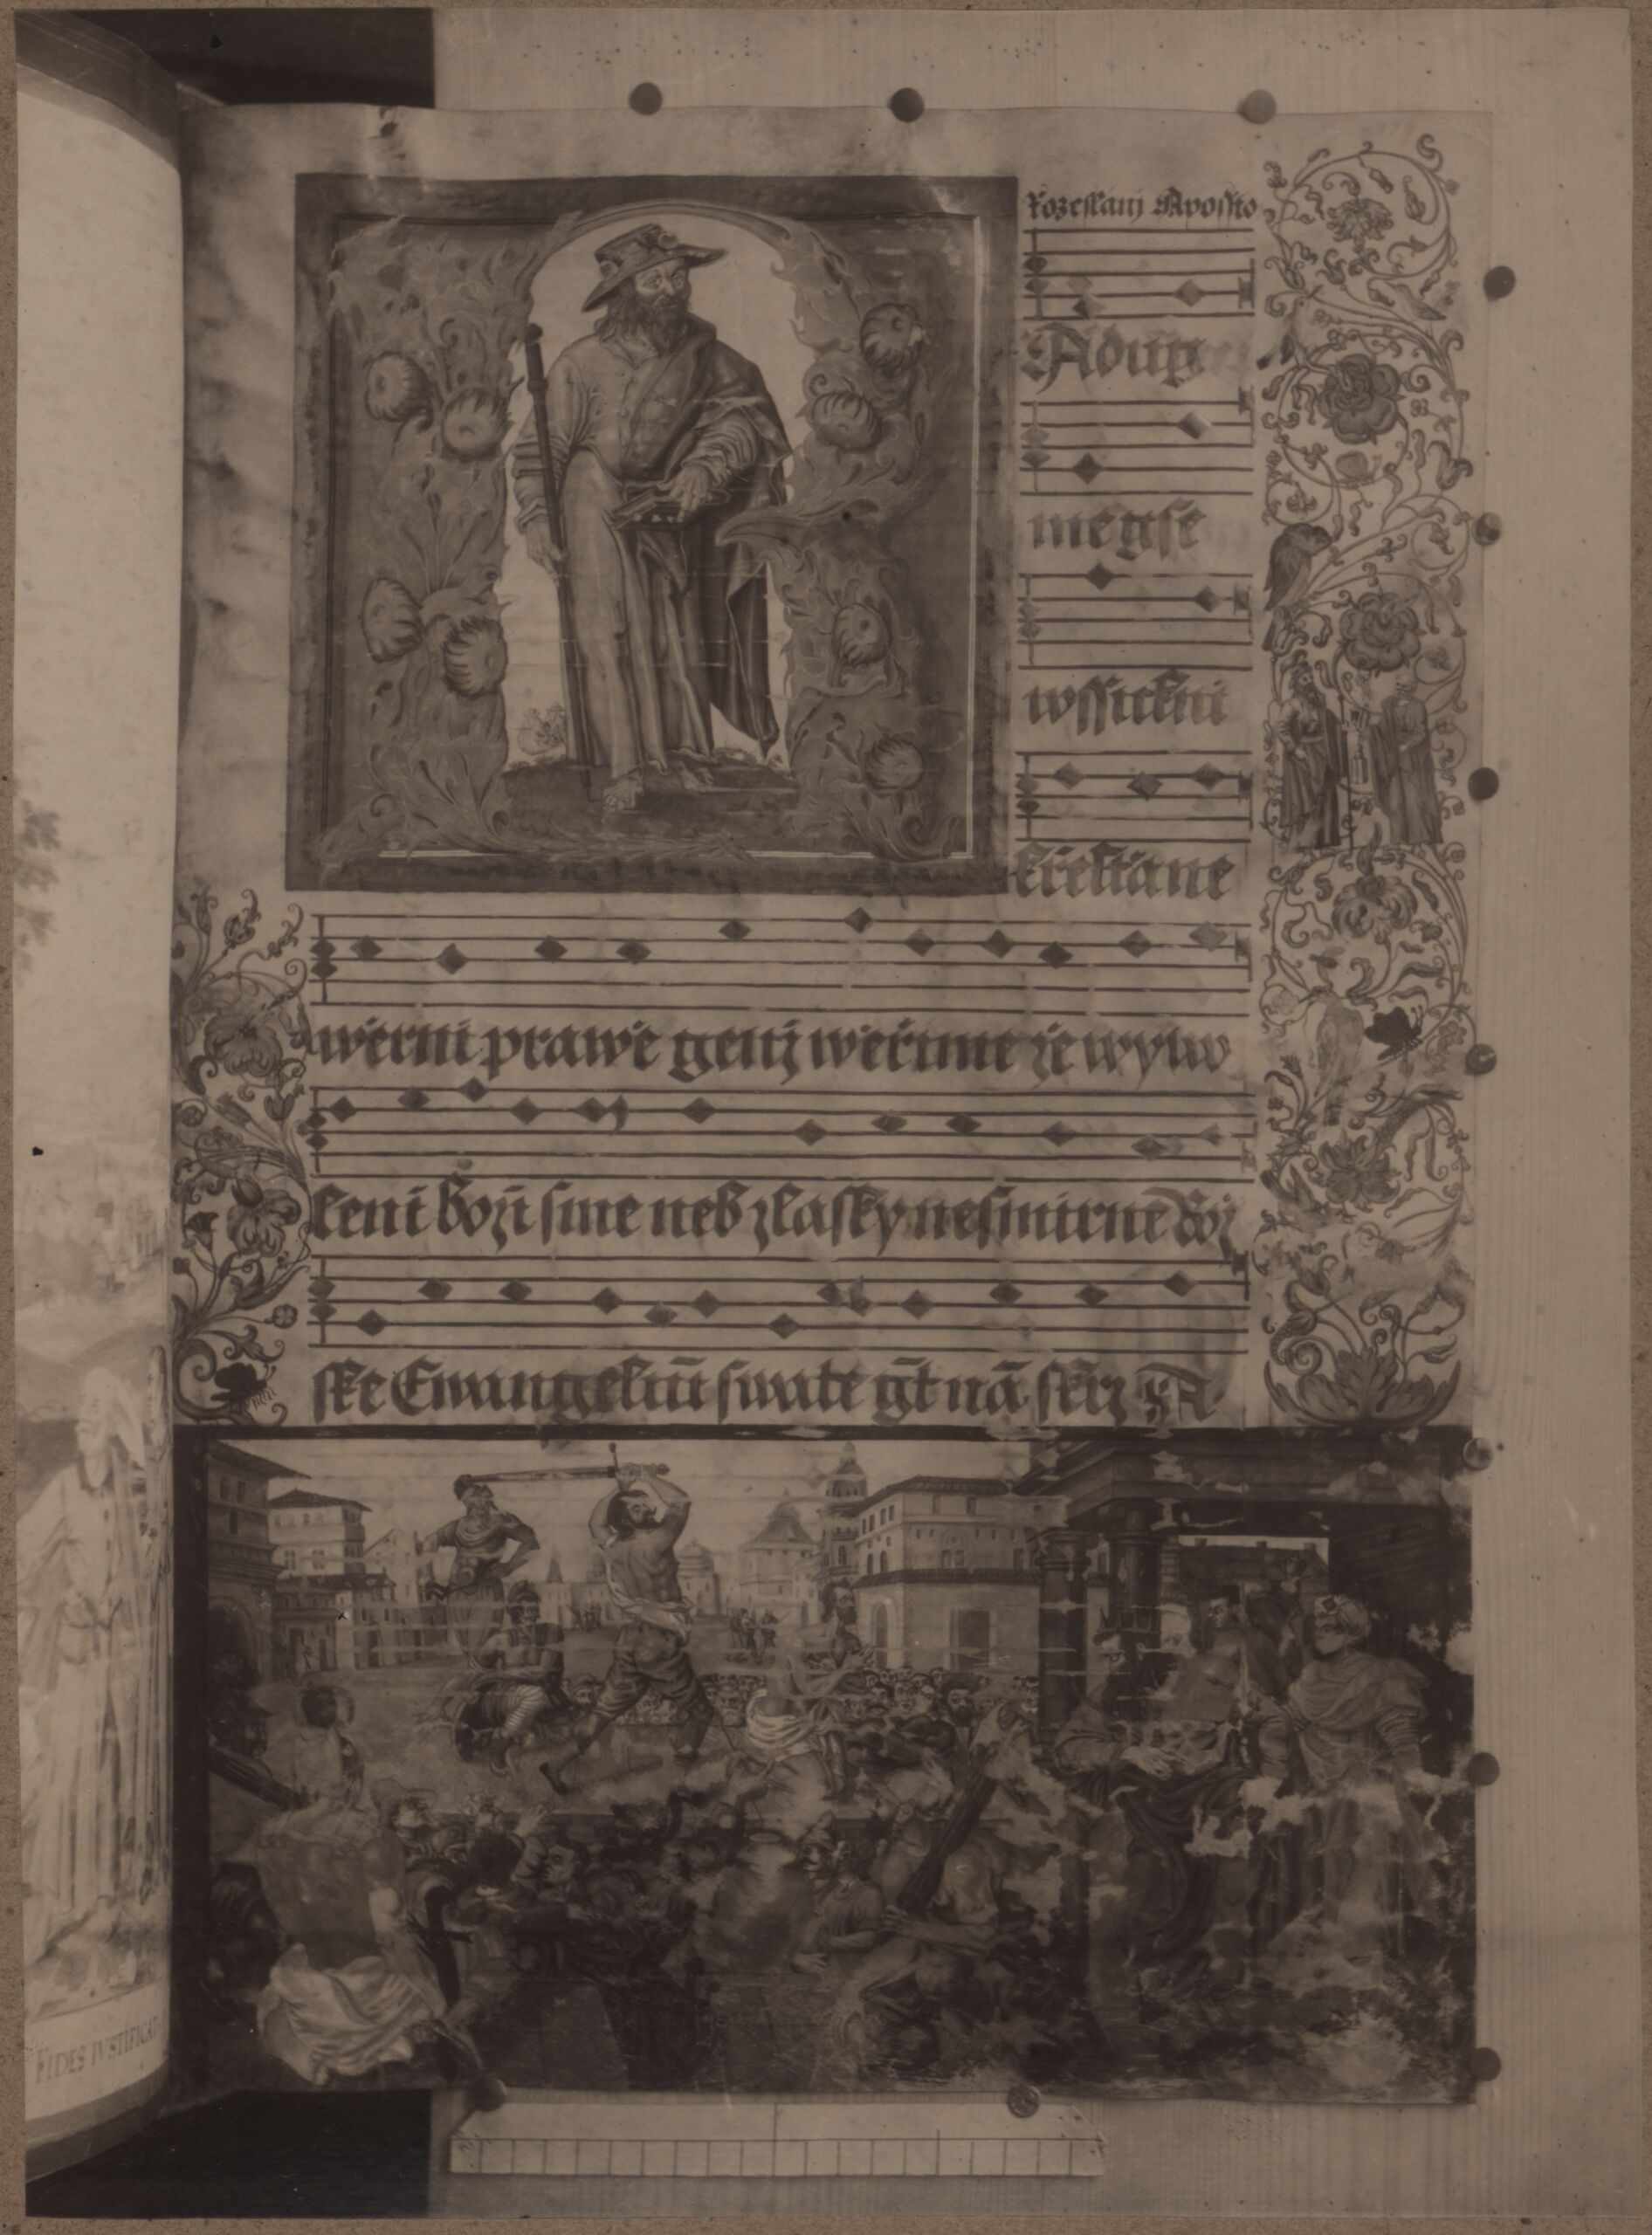 rozeslanj Aposſto
Adugm
megſe
wſſickni
křeſťane
wěrni prawě genž wěřime že wywo
leni boži ſme neb z laſky neſmirne Bož
ſke Ewangelium ſwate gt nā ſkrz A
FIDES IVSTIFICAT